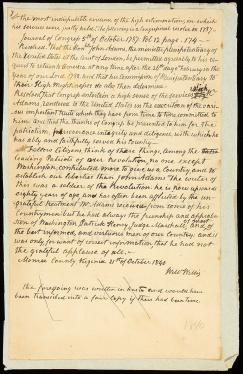 of the most indubitable evidence of the high estimation, in which
his services were partly held. The following is congressional revision in 1787.
Journal of Congress 5th of October 1787 Vol 12 page
Resolved, that the Honble John Adams, the minister plenipotentiary of
the United States at the Court of London, be permitted agreeably to his re
quest to return to America at any time after the 24th day of February in the
year of our Lord 1788 and that his commission of Plenipotentiary to
their High Mightinesses do also then determine
Resolved that Congress entertain a high sense of the services which Mr
Adams, rendered to the United States in the execution of the vari
ous important trusts which they have from time to time committed to
him, and that the thanks of Congress be presented to him for the
patriotism, perseverance integrity and diligence with which he
has ably and faithfully served his country
Fellow Citizens think of these things, Among the
leading Patriots of our Revolution, no one except
Washington, contributed more to give us a Country and to
establish our liberties than John Adams. The writer of
this was a soldier of the Revolution, he is now upward
eighty years of age and has often been afflicted by the un-
grateful treatment Mr. Adams received from some of his
countrymen but he had always the friendship and approba
tion of Washington Patrick Henry, Judge Marshall, and of most of
the best informed, and virtuous men of our Country, and it
was only for want of correct information that he had not
the grateful applause of all.
Monroe County Virginia 21st of October 1840
Will
the foregoing was written in haste and would have
been transcribed into a fair copy if there had been time